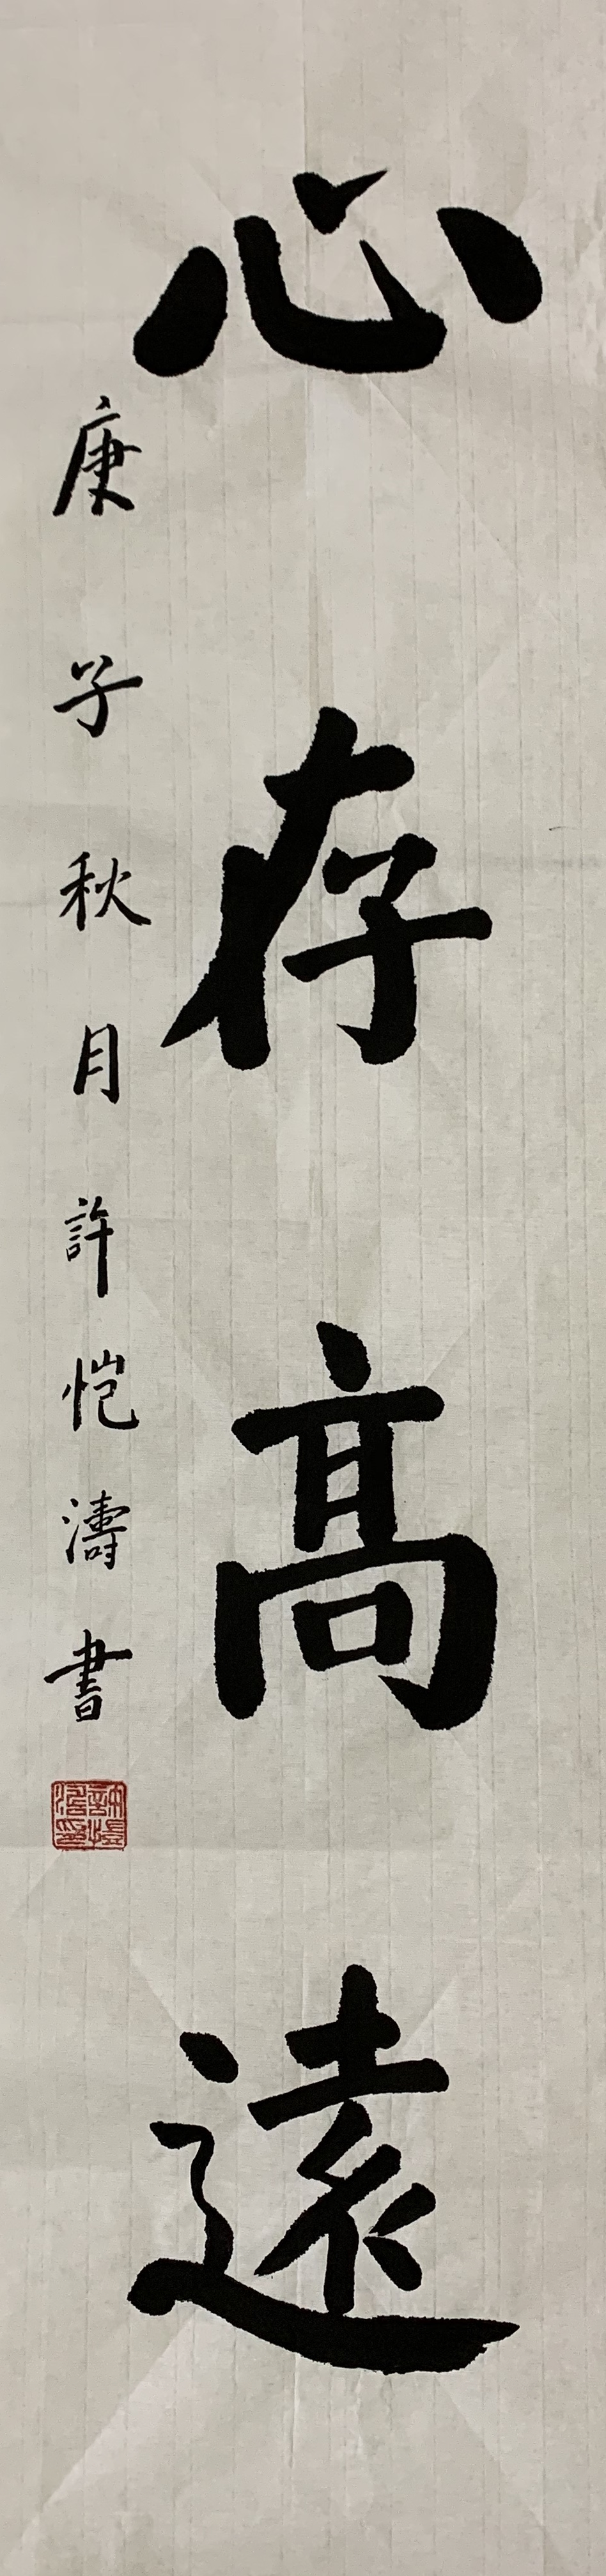 心存高遠
庚子秋月許恺濤書